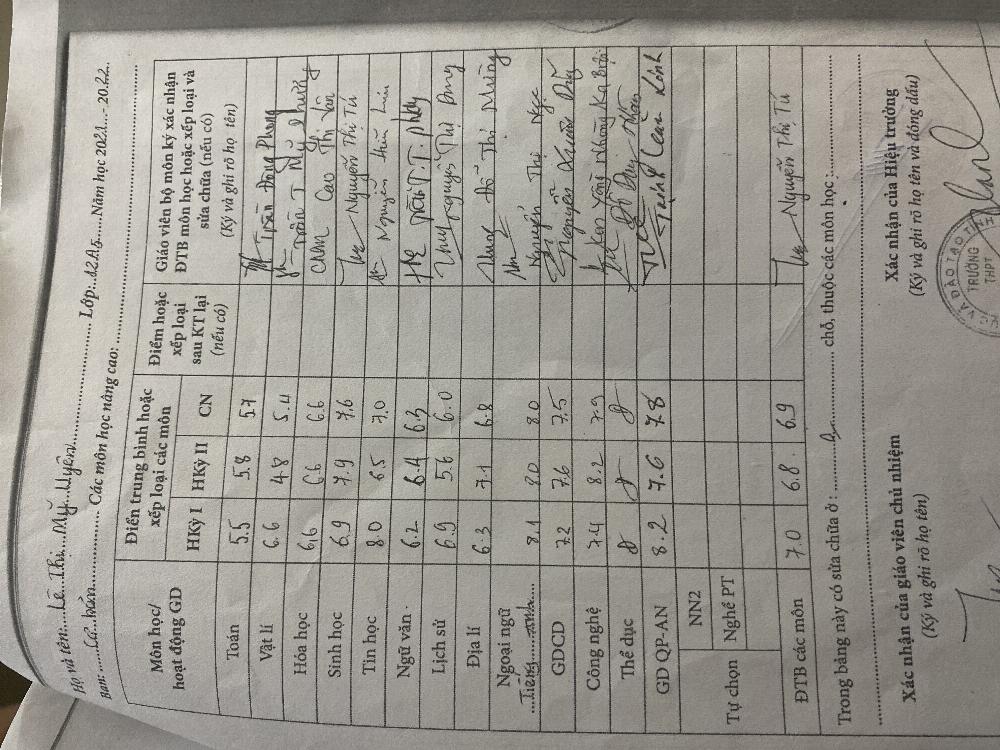 Họ và tên: Lê Thị Mỹ Uyên Lớp: 12A5 Năm học 2021 - 2022
Ban: Cơ bản Các môn học nâng cao:
Môn học/ hoạt động GD
Điểm trung bình hoặc xếp loại các môn
HKỳ I HKỳ II CN
Điểm hoặc xếp loại sau KT lại (nếu có)
Giáo viên bộ môn ký xác nhận ĐTB môn học hoặc xếp loại và sửa chữa (nếu có)
(Ký và ghi rõ họ tên)
Toán 5.5 5.8 5.7 Trần Đông Phong
Vật lí 6.6 4.8 5.4 Trần T Mỹ Phương
Hóa học 6,6 6.6 6.6 Cao Thị Vân
Sinh học 6.9 7.9 7.6 Nguyễn Thị Tú
Tin học 8.0 6.5 7.0 Nguyễn
Ngữ văn 6.2 6.4 6.3
Lịch sử 6.9 5.6 6.0 Nguyễn Thị Dung
Địa lí 6.3 7.1 6.8 Đỗ Thị Mừng
Ngoại ngữ Tiếng Anh 8.1 8.0 8.0 Nguyễn Thị Nga
GDCD 7.2 7.6 7.5 Nguyễn Xuân
Công nghệ 7.4 8.2 7.9
Thể dục Đ Đ Đ
GD QP-AN 8.2 7.6 7.8
Tự chọn
NN2
Nghề PT
ĐTB các môn 7.0 6.8 6.9 Nguyễn Thị Tú
Trong bảng này có sửa chữa ở : chỗ, thuộc các môn học :
Xác nhận của giáo viên chủ nhiệm
(Ký và ghi rõ họ tên)
Xác nhận của Hiệu trưởng
(Ký và ghi rõ họ tên và đóng dấu)
VÀ ĐÀO TẠO
TRƯỜNG
THPT